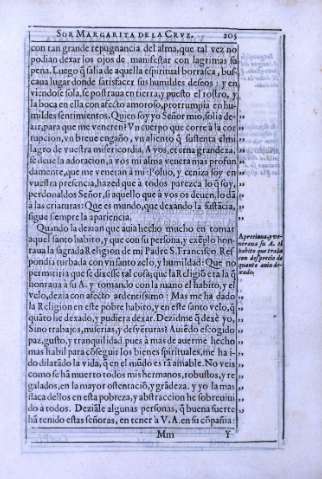 SOR MARGARITA DE LA CRVZ. 205
con tan grande repugnancia del alma, que tal vez no
podian dexar los ojos de manifestar con lagrimas su
pena. Luego q̃ salia de aquella espiritual borrasca, bus-
caua lugar donde satisfacer sus humildes deseos; y en
viendose sola, se postraua en tierra, y puesto el rostro, y
la boca en ella con afecto amoroso, prorrumpia en hu-
mildes sentimientos. Quien soy yo Señor mio, solia de-
zir, para que me veneren? Vn cuerpo que corre à la cor
rupcion, vn breue engaño, vn aliento q̃ sustenta el mi
lagro de vuestra misericordia. A vos, eterna grandeza,
se dèue la adoracion, a vos mi alma venera mas profun
damente, que me veneran à mi: Poluo, y ceniza soy en
vuestra presencia, hazed que à todos parezca lo q̃ soy,
perdonaldos Señor, si aquello que à vos os deuen, lo dã
a las criaturas: Que es mundo, que dexando la sustãcia,
sigue siempre la apariencia.
Quando la dezian que auia hecho mucho en tomar
aquel santo habito, y que con su persona, y exẽplo hon-
raua la sagrada Religion de mi Padre S. Francisco. Res
pondia turbada con vn santo zelo, y humildad: Que no
permitiria que se dixesse tal cosa; que la Religiõ era la q̃
honraua à su A. y tomando con la mano el habito, y el
velo, dezia con afecto ardentissimo: Mas me ha dado
la Religion en este pobre habito, y en este santo velo, q̃
quãto he dexado, y pudiera dexar. Dezidme q̃ dexè yo,
Sino trabajos, miserias, y desventuras? Auiẽdo escogido
paz, gusto, y tranquilidad pues à mas de auerme hecho
mas habil para cõseguir los bienes spirituales, me ha i-
do dilatando la vida, q̃ en el mũdo es tã amable. No veis
como se hã muerto todos mis hermanos, robustos, y re
galados, en la mayor ostentació, y grãdeza. y yo la mas
flaca dellos en esta pobreza, y abstraccion he sobreuiui
do à todos. Dezianle algunas personas, q̃ buena suerte
hã tenido estas señoras, en tener à V. A. en su cõpañia:
Mm Y
Apreciaua, y ve-
neraua su A. el
habito que traia
con desprecio de
quanto auia de-
xado.